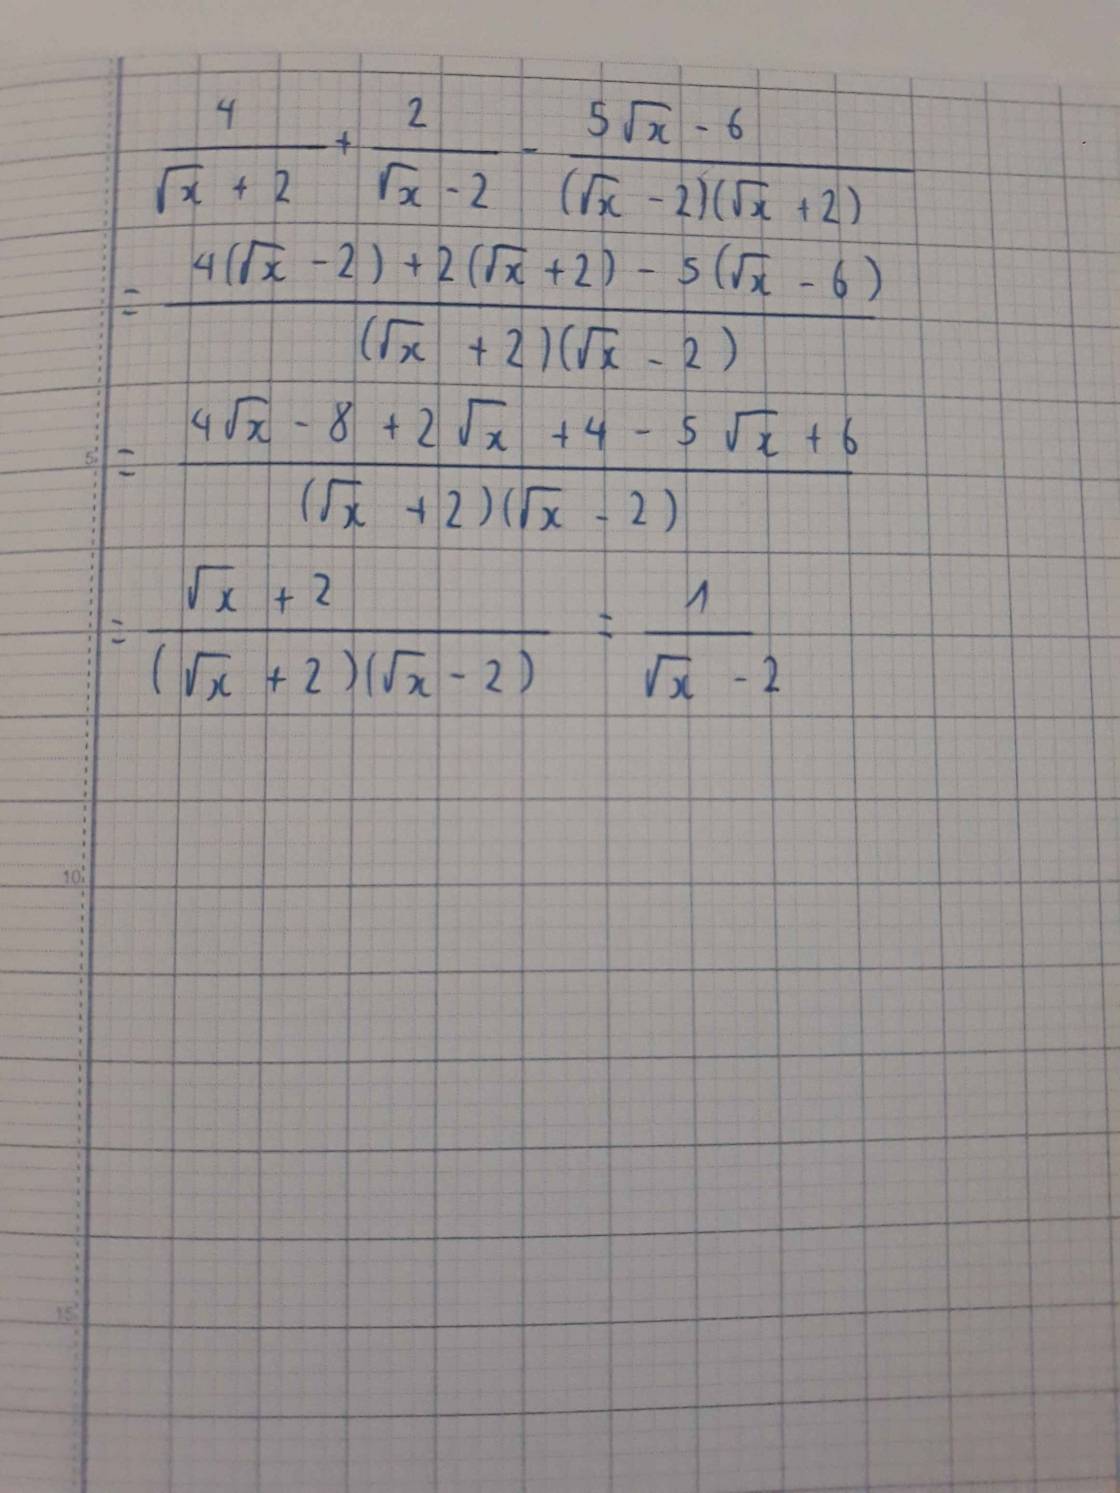 4/(√x + 2) + 2/(√x - 2) - (5√x - 6)/((√x - 2)(√x + 2))
= (4(√x - 2) + 2(√x + 2) - 5(√x - 6))/((√x + 2)(√x - 2))
= (4√x - 8 + 2√x + 4 - 5√x + 6)/((√x + 2)(√x - 2))
5
= (√x + 2)/((√x + 2)(√x - 2)) = 1/(√x - 2)
10
15